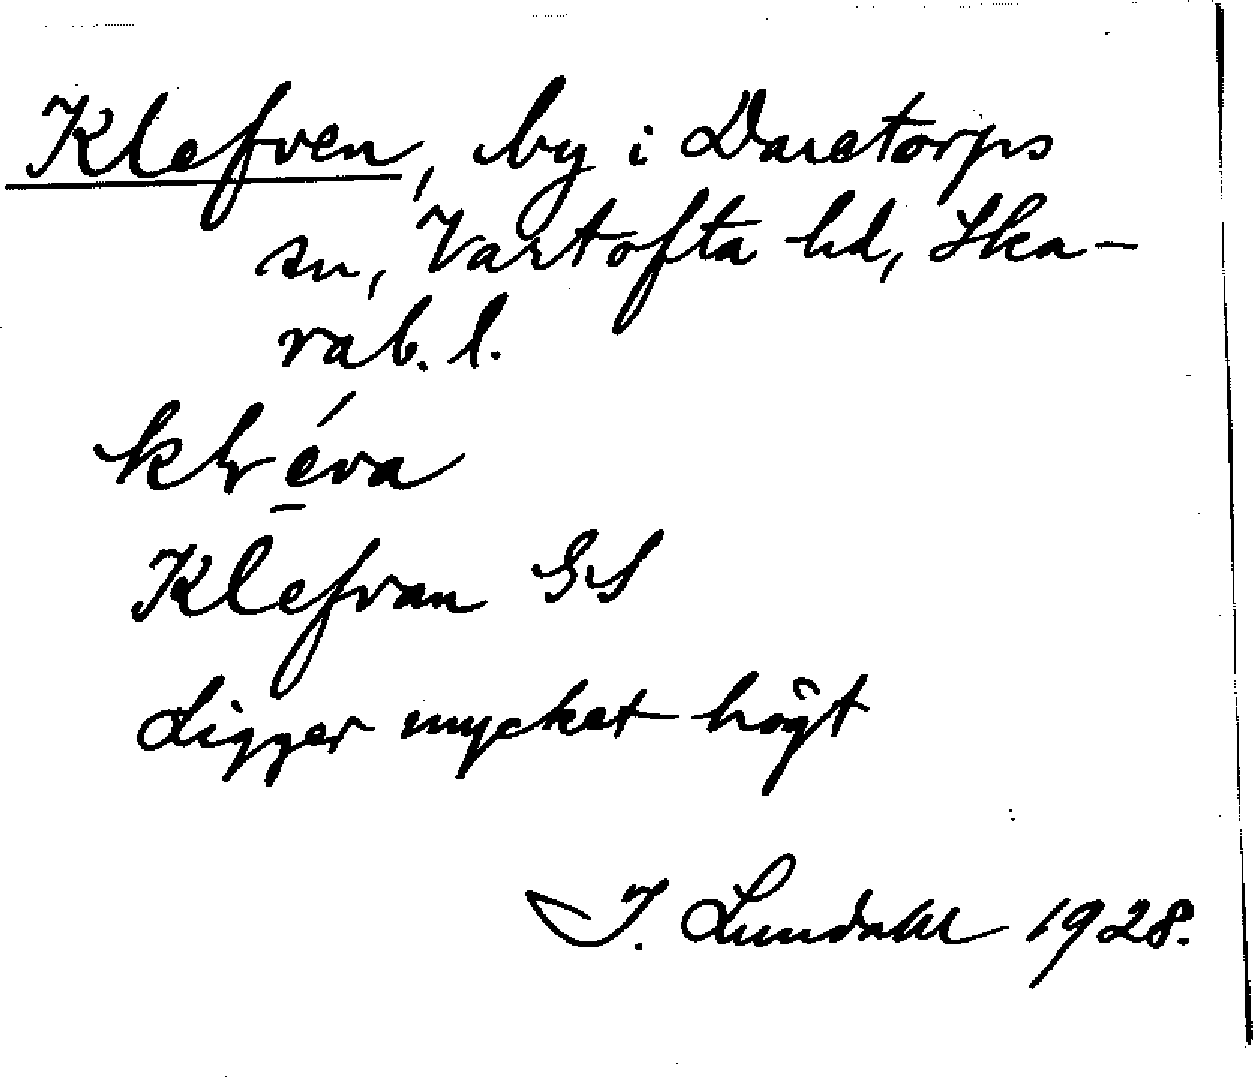 Klefven, by i Daretorps
sn, Vartofta hd, Ska-
rab. l.
kléva
Klefvan GS
Ligger mycket högt
I. Lundahl 1928.